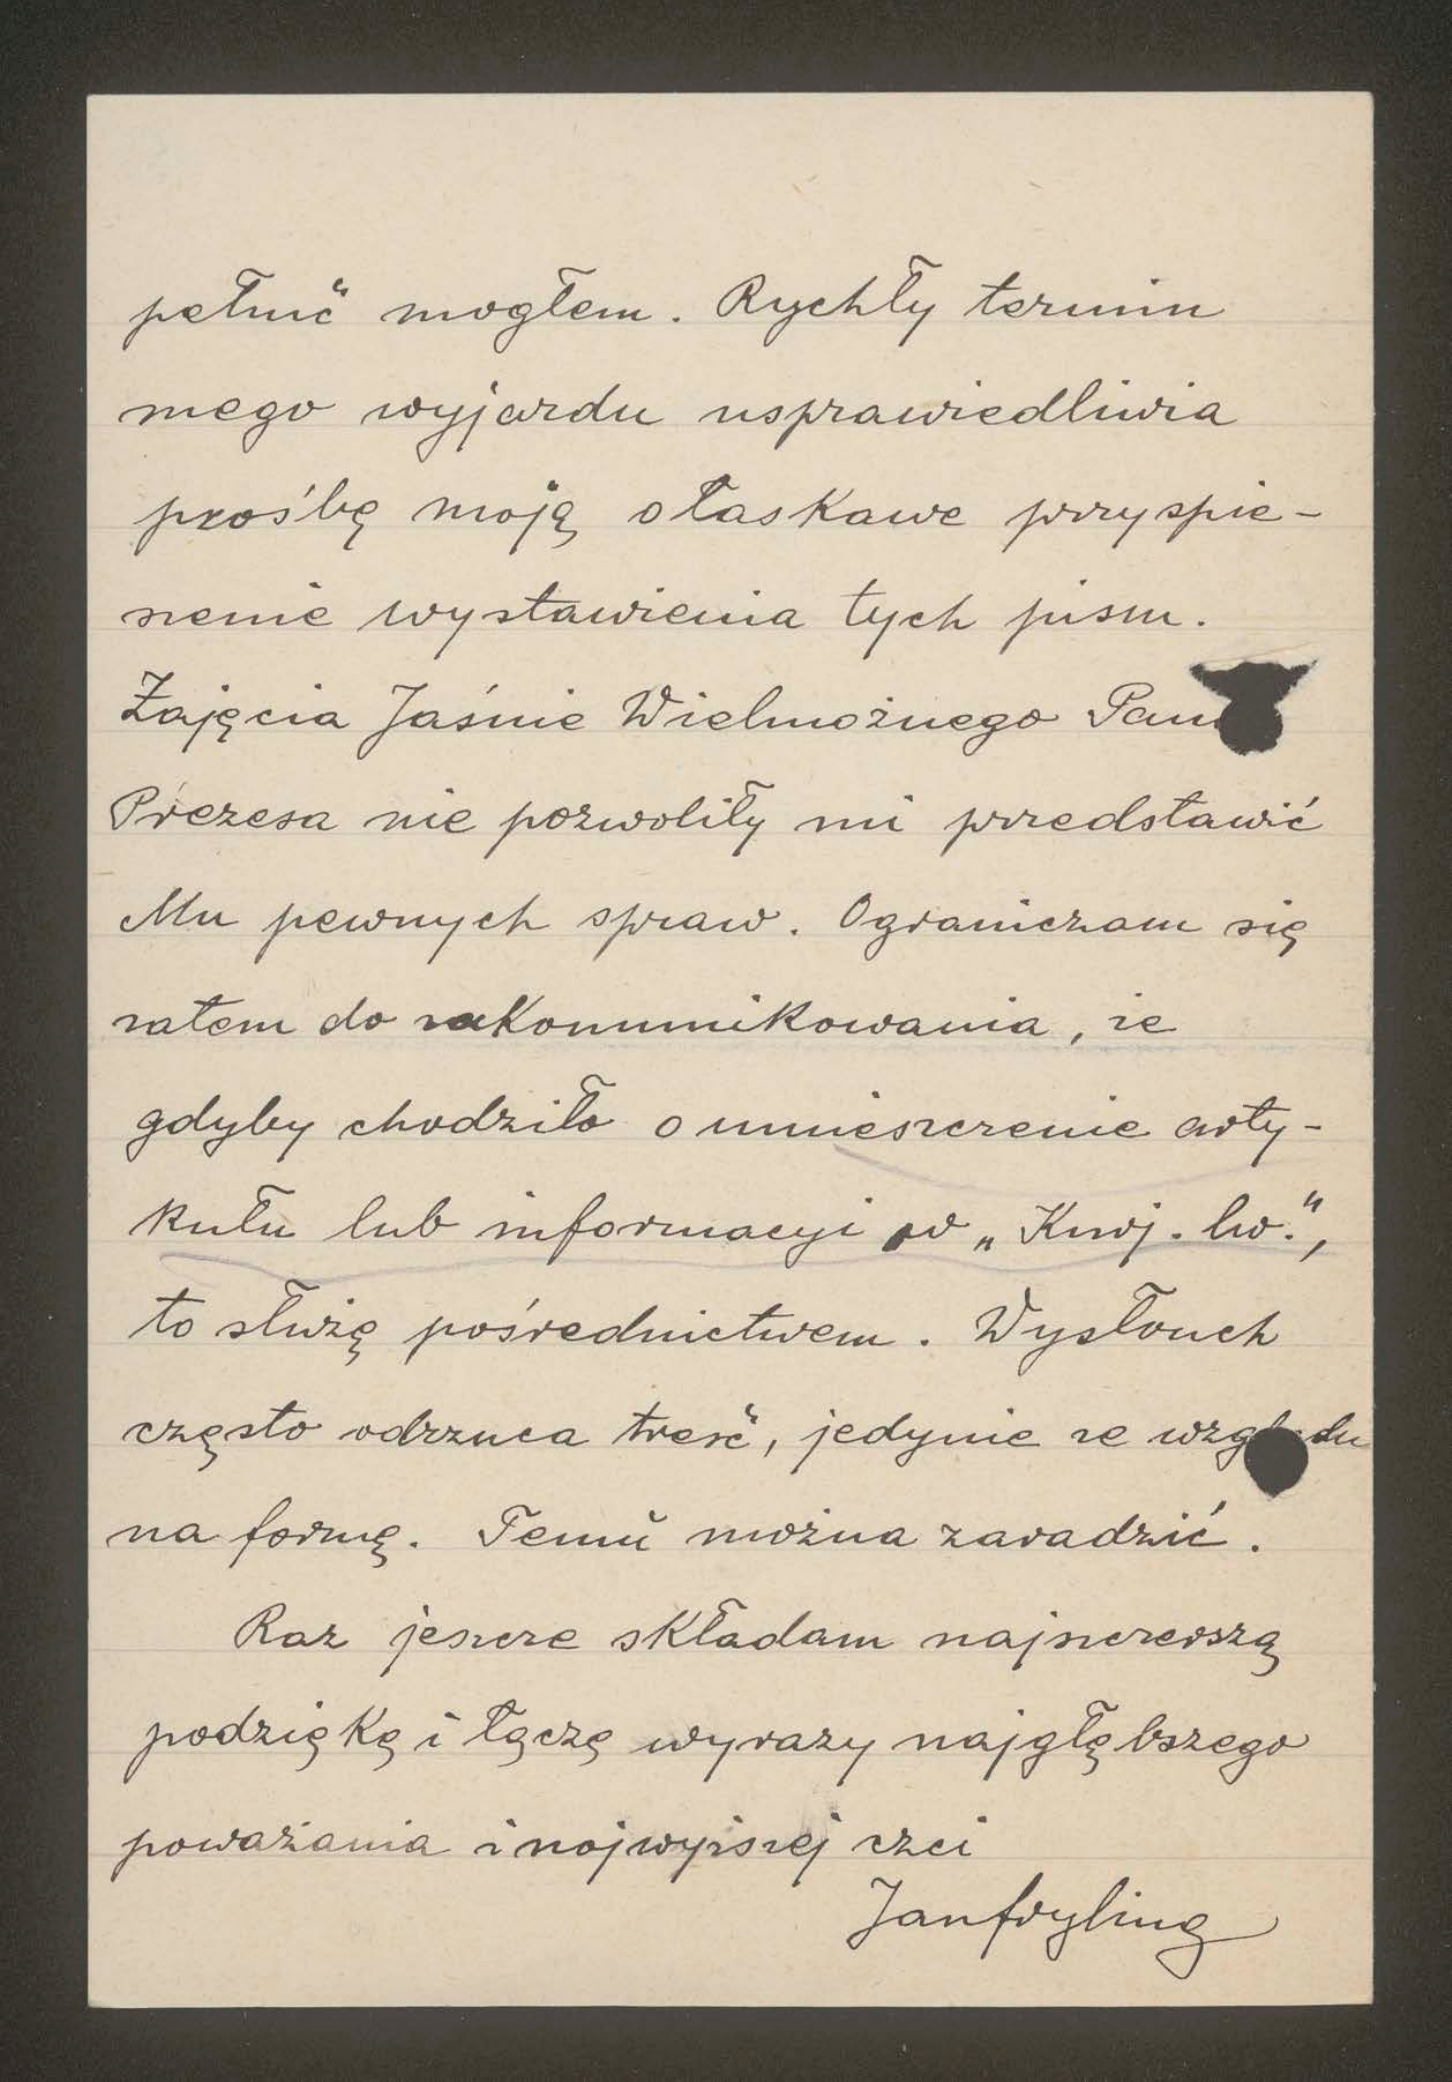 pełnić mogłem. Rychły termin
mego wyjazdu usprawiedliwia
prośbę moją o łaskawe przyspie-
szenie wystawienia tych pism.
Zajęcia Jaśnie Wielmożnego Pana
Prezesa nie pozwoliły mi przedstawić
Mu pewnych spraw. Ograniczam się
zatem do zakomunikowania, że
gdyby chodziło o umieszczenie arty-
kułu lub informacyi w „Kurj. lw.",
to służę pośrednictwem. Wysłouch
często odrzuca treść, jedynie ze względu
na formę. Temu można zaradzić.
Raz jeszcze składam najszczerszą
podziękę i łączę wyrazy najgłębszego
poważania i najwyższej czci
Jan Fryling